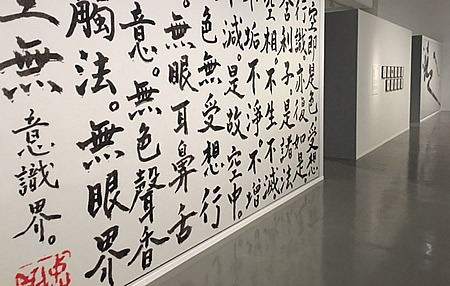 空即是色。受想
行識。亦復如是。
舍利子。是諸法
空相。不生不滅。
不垢。不淨。不增
不減。是故空中。
色無受想行
。無眼耳鼻舌
意。無色聲香
觸法。無眼界
無意識界。